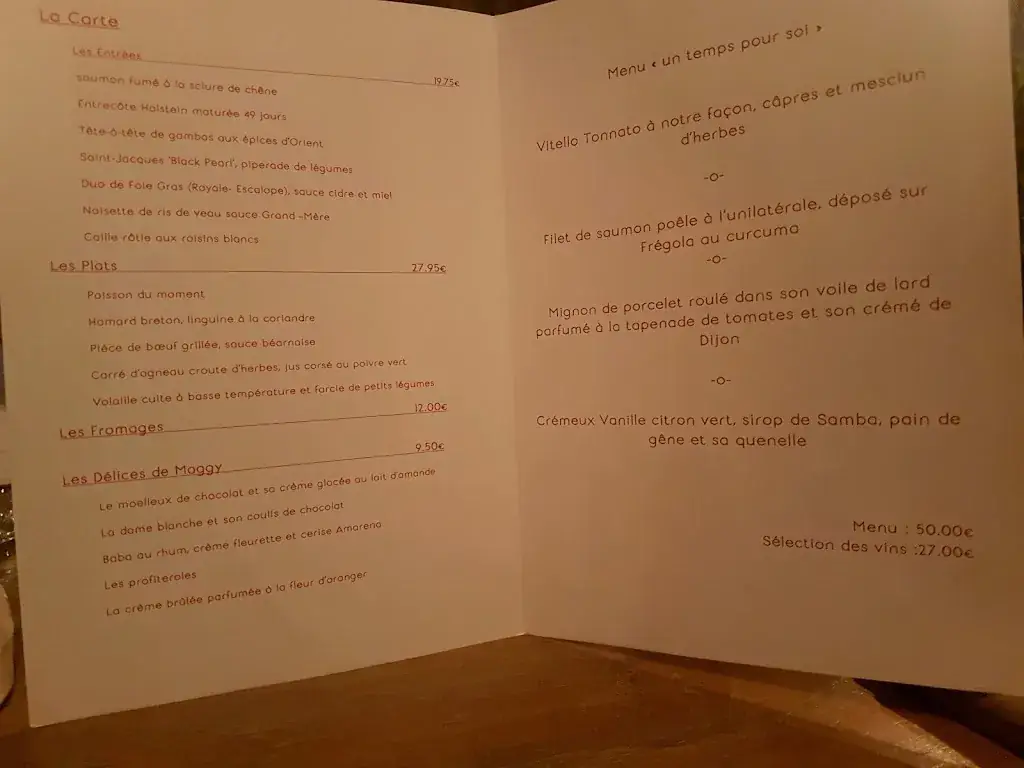 La Carte
Les Entrées 19.75€
saumon fumé à la sciure de chêne
Entrecôte Holstein maturée 49 jours
Tête-à-tête de gambas aux épices d'Orient
Saint-Jacques 'Black Pearl', piperade de légumes
Duo de Foie Gras (Royale- Escalope), sauce cidre et miel
Noisette de ris de veau sauce Grand-Mère
Caille rôtie aux raisins blancs
Les Plats 27.95€
Poisson du moment
Homard breton, linguine à la coriandre
Pièce de bœuf grillée, sauce béarnaise
Carré d'agneau croute d'herbes, jus corsé au poivre vert
Volaille cuite à basse température et farcie de petits légumes
Les Fromages 12.00€
Les Délices de Maggy 9.50€
Le moelleux de chocolat et sa crème glacée au lait d'amande
La dame blanche et son coulis de chocolat
Baba au rhum, crème fleurette et cerise Amarena
Les profiteroles
La crème brûlée parfumée à la fleur d'oranger
Menu « un temps pour soi »
Vitello Tonnato à notre façon, câpres et mesclun
d'herbes
-o-
Filet de saumon poêle à l'unilatérale, déposé sur
Frégola au curcuma
-o-
Mignon de porcelet roulé dans son voile de lard
parfumé à la tapenade de tomates et son crémé de
Dijon
-o-
Crémeux Vanille citron vert, sirop de Samba, pain de
gêne et sa quenelle
Menu : 50.00€
Sélection des vins :27.00€